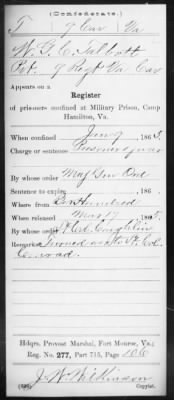 (Confederate.)
T 9 Cav Va
W. G. T. Talbott
Pvt. 9 Regt Va Cav
Appears on a
Register
of prisoners confined at Military Prison, Camp
Hamilton, Va.
When confined 9 186
Charge or sentence Prisoner of war
By whose order Maj Gen Ord
Sentence to expire 186 .
Where from Ber Hundred
When released Mar 17 186
By whose order Lt Col Coughlin
Remarks Turned over to Lt. Col.
Conrad.
Hdqrs. Provost Marshal, Fort Monroe, Va.;
Reg. No. 277, Part 715, Page 106
J. W. Wilkinson
Copyist.